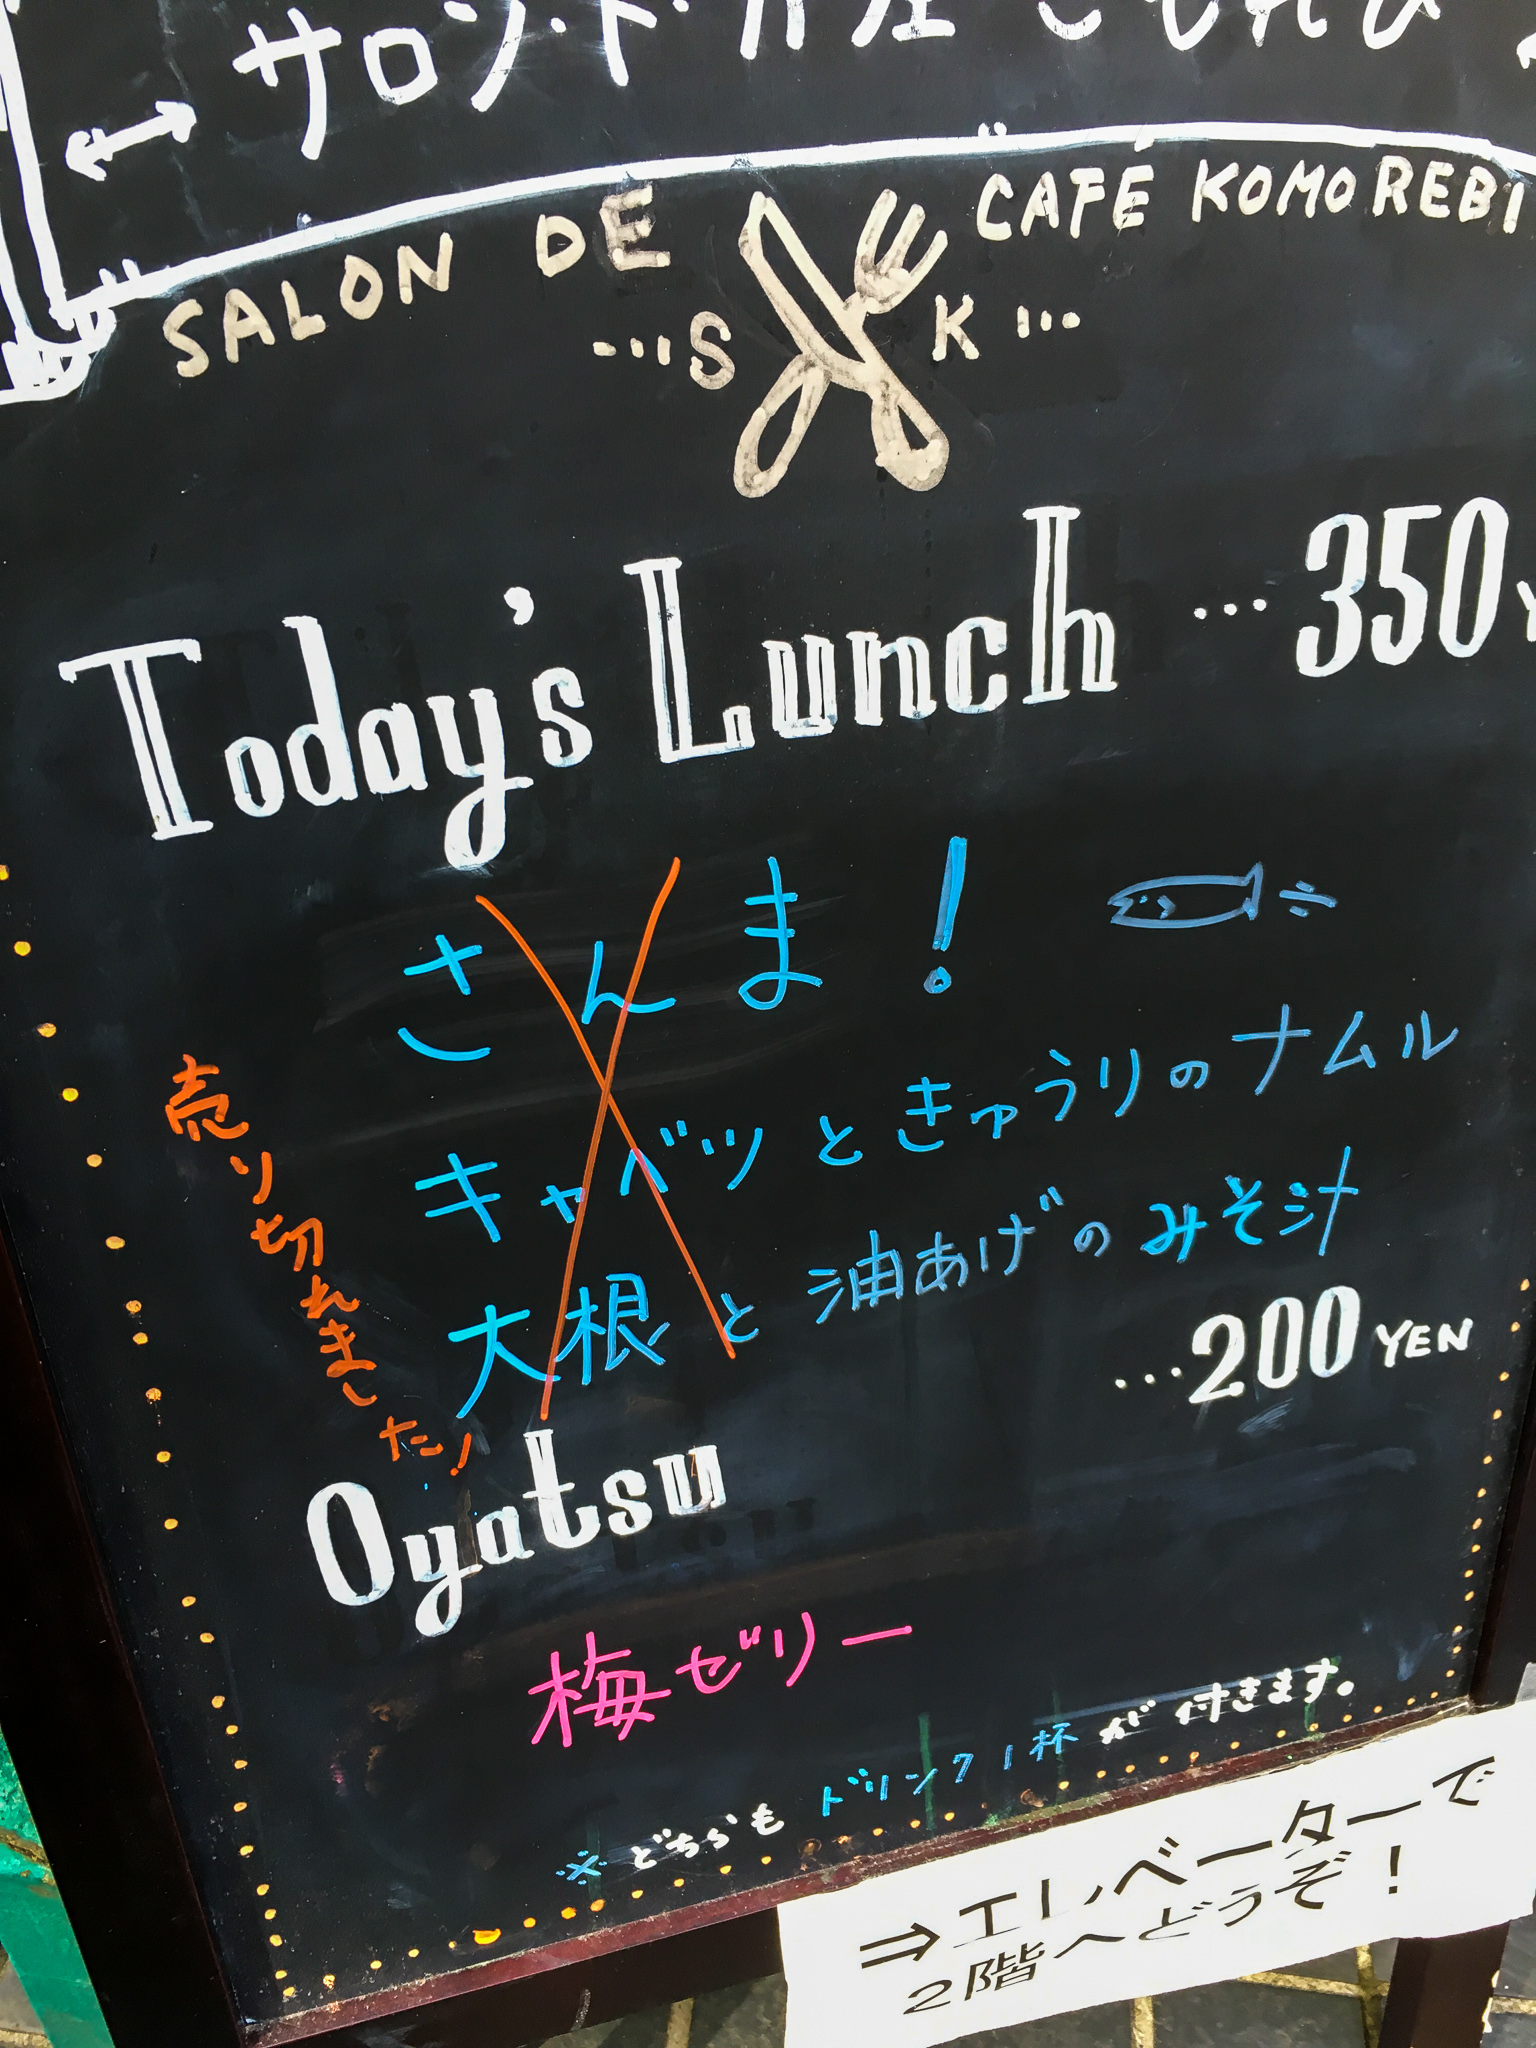 サロン・ド・カフェ こもれび
SALON DE CAFÉ KOMOREBI
...S K...
Today's Lunch ...350
さんま!
キャベツときゅうりのナムル
大根と油あげのみそ汁
売り切れました!
...200 YEN
Oyatsu
梅ゼリー
※どちらもドリンク1杯が付きます。
⇒エレベーターで
2階へどうぞ!